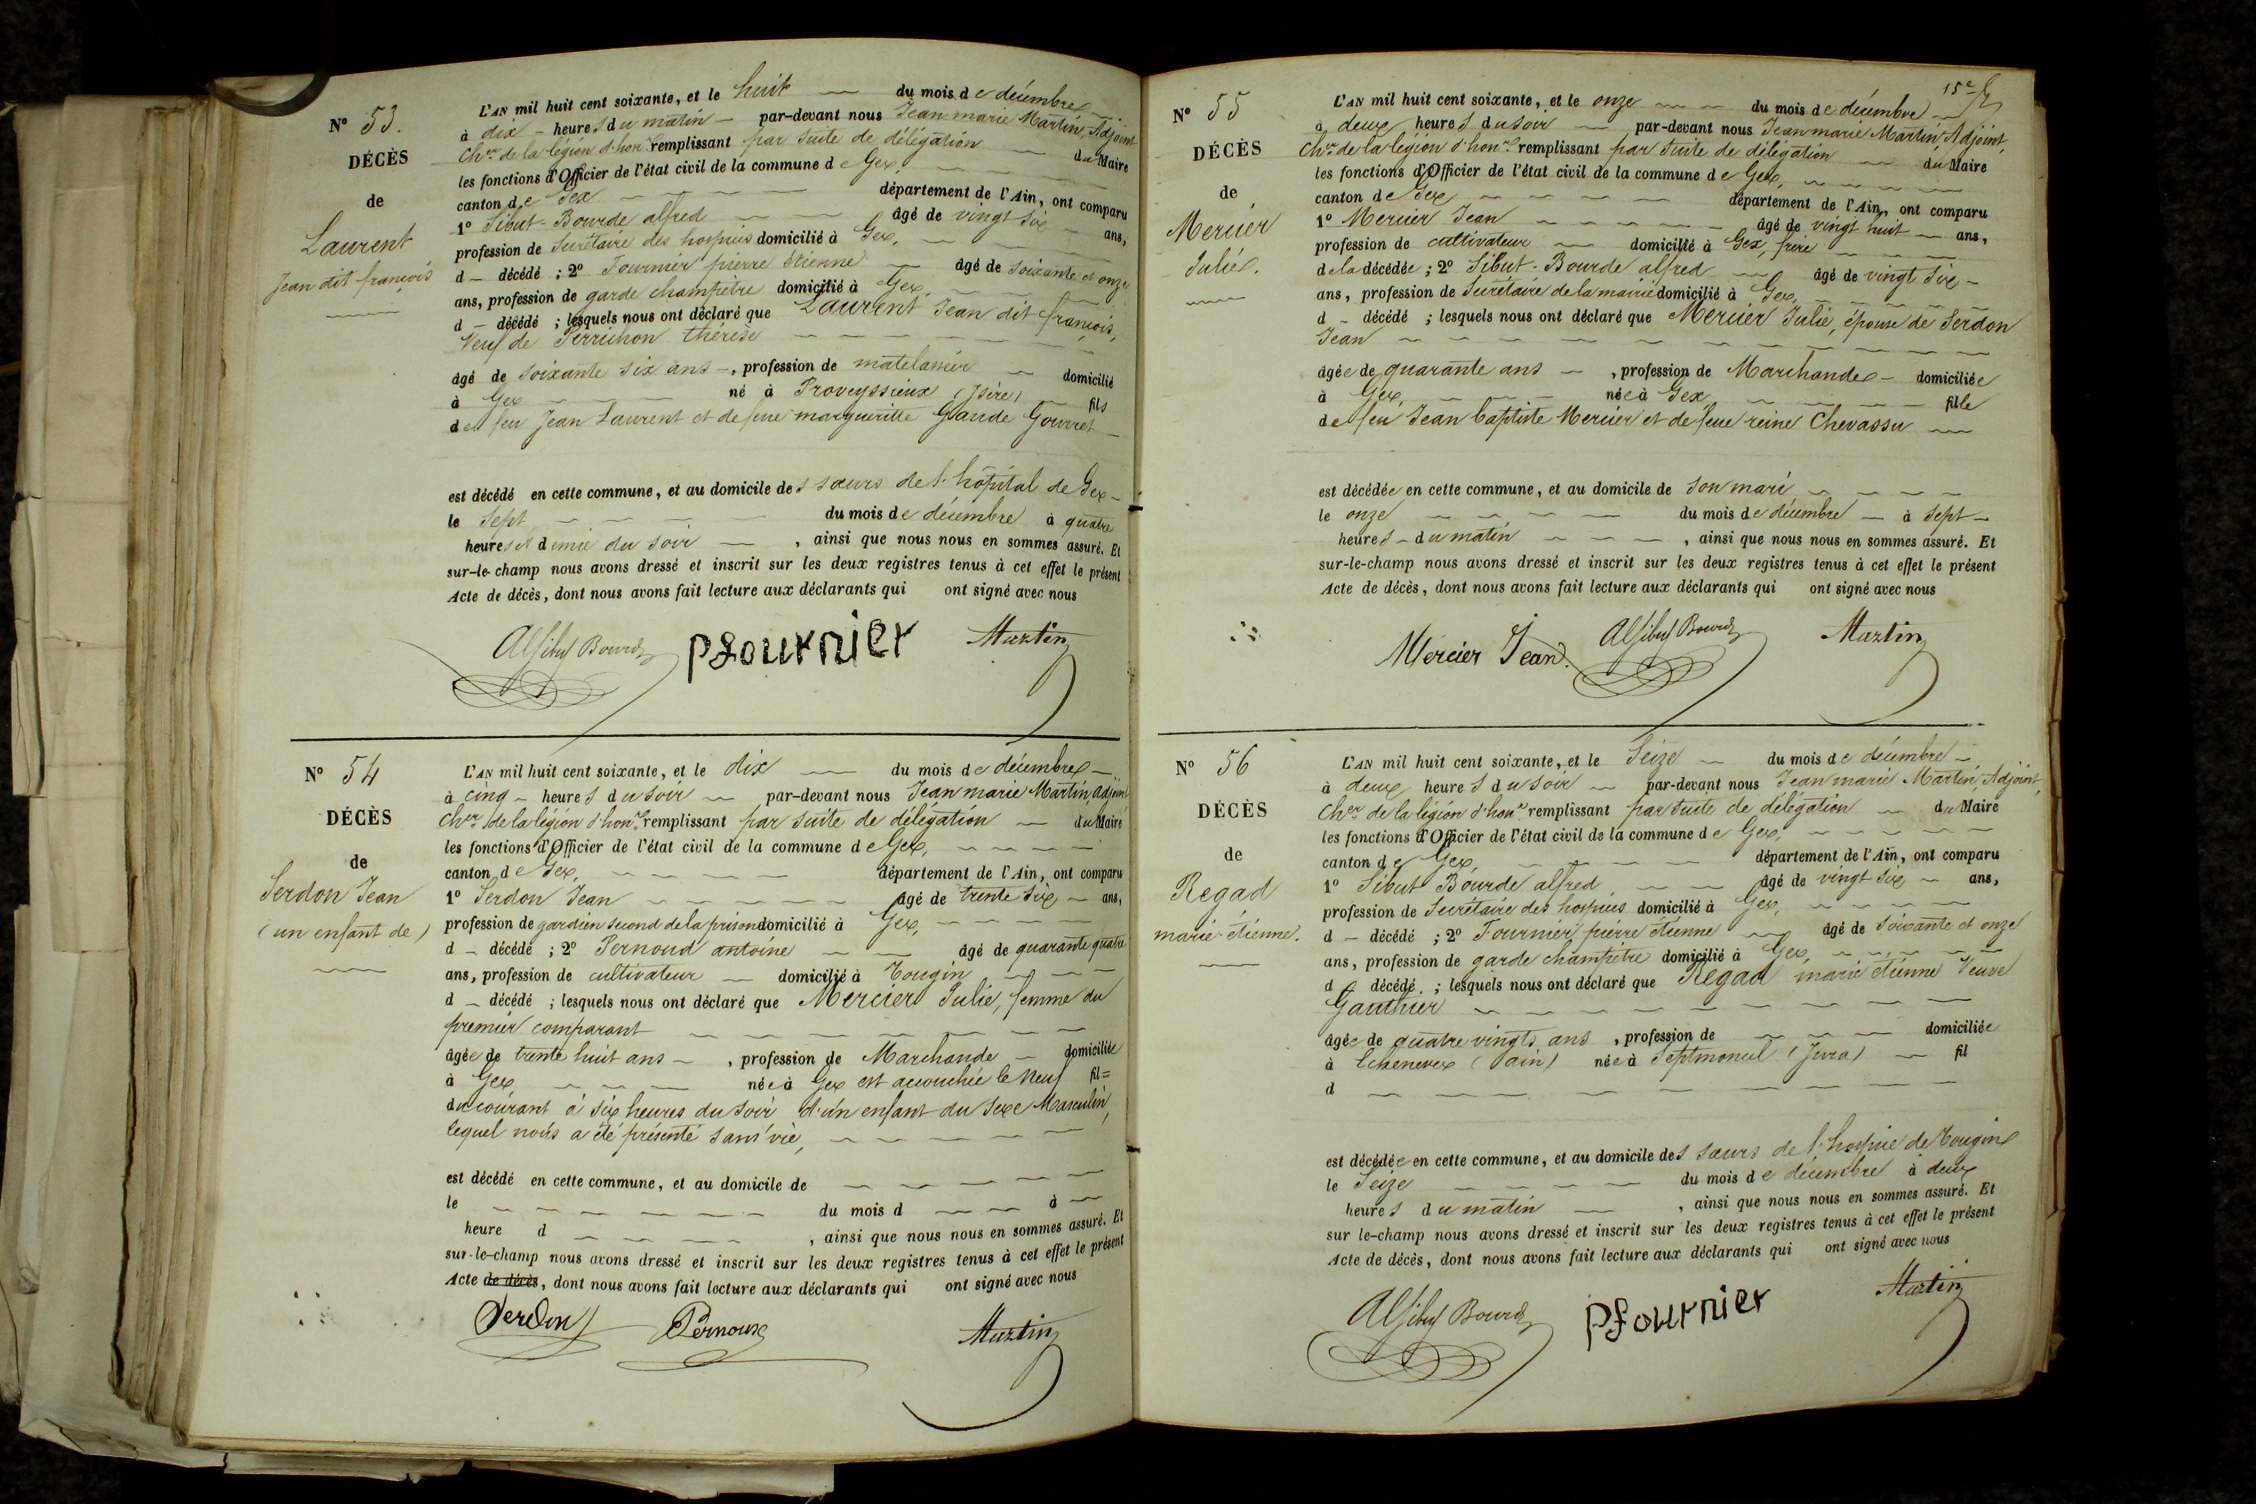 N° 53.
DÉCÈS
de
Laurent
Jean dit françois
L'AN mil huit cent soixante, et le huit du mois de décembre
à dix heures du matin par-devant nous Jean marie Martin, Adjoint
Cher de la légion d'honr remplissant par suite de délégation du Maire
les fonctions d'Officier de l'état civil de la commune de Gex,
canton de Gex département de l'Ain, ont comparu
1° Sibut-Bourde alfred âgé de vingt six ans,
profession de Secrétaire des hospices domicilié à Gex,
d décédé ; 2° Fournier pierre étienne âgé de soixante et onze
ans, profession de garde champêtre domicilié à Gex,
d décédé ; lesquels nous ont déclaré que Laurent Jean dit françois,
Veuf de Perrichon thérèse
âgé de soixante six ans, profession de matelassier domicilié
à Gex né à Proveyssieux (Isère) fils
de feu Jean Laurent et de feue margueritte Gaude Gourret
est décédé en cette commune, et au domicile des sœurs de l'hôpital de Gex
le sept du mois de décembre à quatre
heures et demie du soir, ainsi que nous nous en sommes assuré. Et
sur-le-champ nous avons dressé et inscrit sur les deux registres tenus à cet effet le présent
Acte de décès, dont nous avons fait lecture aux déclarants qui ont signé avec nous
Al Sibut Bourde pfournier Martin
N° 54
DÉCÈS
de
Serdon Jean
(un enfant de)
L'AN mil huit cent soixante, et le dix du mois de décembre
à cinq heures du soir par-devant nous Jean marie Martin, adjoint
Cher de la légion d'honr remplissant par suite de délégation du Maire
les fonctions d'Officier de l'état civil de la commune de Gex,
canton de Gex, département de l'Ain, ont comparu
1° Serdon Jean âgé de trente six ans,
profession de gardien second de la prison domicilié à Gex,
d décédé ; 2° Pernoud antoine âgé de quarante quatre
ans, profession de cultivateur domicilié à Tougin
d décédé ; lesquels nous ont déclaré que Mercier Julie, femme du
premier comparant
âgée de trente huit ans, profession de Marchande domiciliée
à Gex née à Gex est accouchée le Neuf fil=
du courant à six heures du soir d'un enfant du sexe Masculin,
lequel nous a été présenté sans vie,
est décédé en cette commune, et au domicile de
le du mois d à
heure d , ainsi que nous nous en sommes assuré. Et
sur-le-champ nous avons dressé et inscrit sur les deux registres tenus à cet effet le présent
Acte de décès, dont nous avons fait lecture aux déclarants qui ont signé avec nous
Serdon Pernoux Martin
N° 55
DÉCÈS
de
Mercier
Julie.
L'AN mil huit cent soixante, et le onze du mois de décembre
à deux heures du soir par-devant nous Jean marie Martin, Adjoint,
Cher de la légion d'honr remplissant par suite de délégation du Maire
les fonctions d'Officier de l'état civil de la commune de Gex,
canton de Gex département de l'Ain, ont comparu
1° Mercier Jean âgé de vingt huit ans,
profession de cultivateur domicilié à Gex, frère
de la décédée ; 2° Sibut-Bourde alfred âgé de vingt six
ans, profession de Secrétaire de la mairie domicilié à Gex,
d décédé ; lesquels nous ont déclaré que Mercier Julie, épouse de Serdon
Jean
âgée de quarante ans, profession de Marchande domiciliée
à Gex, née à Gex fille
de feu Jean baptiste Mercier et de feue reine Chevassu
est décédée en cette commune, et au domicile de son mari
le onze du mois de décembre à sept
heures du matin, ainsi que nous nous en sommes assuré. Et
sur-le-champ nous avons dressé et inscrit sur les deux registres tenus à cet effet le présent
Acte de décès, dont nous avons fait lecture aux déclarants qui ont signé avec nous
Mercier Jean. Al Sibut Bourde Martin
N° 56
DÉCÈS
de
Regad
marie étienne.
L'AN mil huit cent soixante, et le Seize du mois de décembre
à deux heures du soir par-devant nous Jean marie Martin, Adjoint,
Cher de la légion d'honr remplissant par suite de délégation du Maire
les fonctions d'Officier de l'état civil de la commune de Gex,
canton de Gex, département de l'Ain, ont comparu
1° Sibut Bourde alfred âgé de vingt six ans,
profession de Secrétaire des hospices domicilié à Gex,
d décédé ; 2° Fournier pierre étienne âgé de soixante et onze
ans, profession de garde champêtre domicilié à Gex,
d décédé ; lesquels nous ont déclaré que Regad marie étienne Veuve
Gauthier
âgée de quatre vingts ans, profession de domiciliée
à Echenevex (ain) née à Septmoncel (Jura) fil
d
est décédée en cette commune, et au domicile des sœurs de l'hospice de Tougin
le Seize du mois de décembre à deux
heures du matin, ainsi que nous nous en sommes assuré. Et
sur le-champ nous avons dressé et inscrit sur les deux registres tenus à cet effet le présent
Acte de décès, dont nous avons fait lecture aux déclarants qui ont signé avec nous
Al Sibut Bourde pfournier Martin